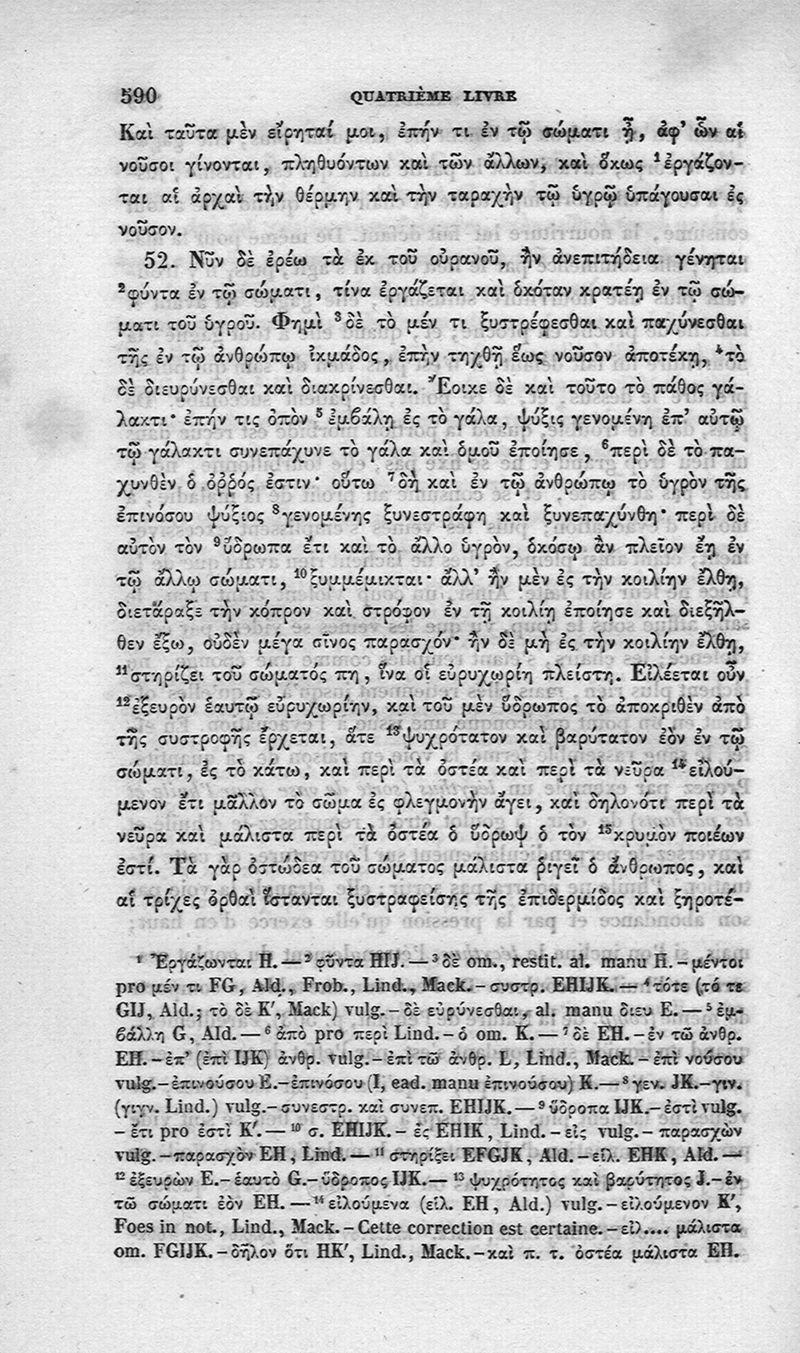 590 QUATRIÈME LIVRE
Καὶ ταῦτα μὲν εἴρηταί μοι, ἐπήν τι ἐν τῷ σώματι ᾖ, ἀφ’ ὧν αἱ
νοῦσοι γίνονται, πληθυόντων καὶ τῶν ἄλλων, καὶ ὅκως ¹ἐργάζον-
ται αἱ ἀρχαὶ τὴν θέρμην καὶ τὴν ταραχὴν τῷ ὑγρῷ ὑπάγουσαι ἐς
νοῦσον.
52. Νῦν δὲ ἐρέω τὰ ἐκ τοῦ οὐρανοῦ, ἢν ἀνεπιτήδεια γένηται
²φύντα ἐν τῷ σώματι, τίνα ἐργάζεται καὶ ὁκόταν κρατέῃ ἐν τῷ σώ-
ματι τοῦ ὑγροῦ. Φημὶ ³δὲ τὸ μέν τι ξυστρέφεσθαι καὶ παχύνεσθαι
τῆς ἐν τῷ ἀνθρώπῳ ἰκμάδος, ἐπὴν τηχθῇ ἕως νοῦσον ἀποτέκῃ, ⁴τὸ
δὲ διευρύνεσθαι καὶ διακρίνεσθαι. Ἔοικε δὲ καὶ τοῦτο τὸ πάθος γά-
λακτι· ἐπήν τις ὀπὸν ⁵ἐμβάλῃ ἐς τὸ γάλα, ψύξις γενομένη ἐπ’ αὐτῷ
τῷ γάλακτι συνεπάχυνε τὸ γάλα καὶ ὁμοῦ ἐποίησε, ⁶περὶ δὲ τὸ πα-
χυνθὲν ὁ ὀῤῥός ἐστιν· οὕτω ⁷δὴ καὶ ἐν τῷ ἀνθρώπῳ τὸ ὑγρὸν τῆς
ἐπινόσου ψύξιος ⁸γενομένης ξυνεστράφη καὶ ξυνεπαχύνθη· περὶ δὲ
αὐτὸν τὸν ⁹ὕδρωπα ἔτι καὶ τὸ ἄλλο ὑγρὸν, ὁκόσῳ ἂν πλεῖον ἔῃ ἐν
τῷ ἄλλῳ σώματι, ¹⁰ξυμμέμικται· ἀλλ’ ἢν μὲν ἐς τὴν κοιλίην ἔλθῃ,
διετάραξε τὴν κόπρον καὶ στρόφον ἐν τῇ κοιλίῃ ἐποίησε καὶ διεξῆλ-
θεν ἔξω, οὐδὲν μέγα σῖνος παρασχόν· ἢν δὲ μὴ ἐς τὴν κοιλίην ἔλθῃ,
¹¹στηρίζει τοῦ σώματός πη, ἵνα οἱ εὐρυχωρίη πλείστη. Εἰλέεται οὖν
¹²ἐξευρὸν ἑαυτῷ εὐρυχωρίην, καὶ τοῦ μὲν ὕδρωπος τὸ ἀποκριθὲν ἀπὸ
τῆς συστροφῆς ἔρχεται, ἅτε ¹³ψυχρότατον καὶ βαρύτατον ἐὸν ἐν τῷ
σώματι, ἐς τὸ κάτω, καὶ περὶ τὰ ὀστέα καὶ περὶ τὰ νεῦρα ¹⁴εἰλού-
μενον ἔτι μᾶλλον τὸ σῶμα ἐς φλεγμονὴν ἄγει, καὶ δηλονότι περὶ τὰ
νεῦρα καὶ μάλιστα περὶ τὰ ὀστέα ὁ ὕδρωψ ὁ τὸν ¹⁵κρυμὸν ποιέων
ἐστί. Τὰ γὰρ ὀστώδεα τοῦ σώματος μάλιστα ῥιγεῖ ὁ ἄνθρωπος, καὶ
αἱ τρίχες ὀρθαὶ ἵστανται ξυστραφείσης τῆς ἐπιδερμίδος καὶ ξηροτέ-
¹ Ἐργάζωνται H. — ² φῦντα HIJ. — ³ δὲ om., restit. al. manu H. – μέντοι
pro μέν τι FG, Ald., Frob., Lind., Mack. – συστρ. EHIJK. — ⁴ τότε (τό τε
GIJ, Ald.; τὸ δὲ K′, Mack) vulg. – δὲ εὑρύνεσθαι, al. manu διευ E. — ⁵ ἐμ-
βάλλη G, Ald. — ⁶ ἀπὸ pro περὶ Lind. – ὁ om. K. — ⁷ δὲ EH. – ἐν τῶ ἀνθρ.
EH. – ἐπ’ (ἐπὶ IJK) ἀνθρ. vulg. – ἐπὶ τῶ ἀνθρ. L, Lind., Mack. – ἐπὶ νούσου
vulg. – ἐπινούσου E. – ἐπινόσου (I, ead. manu ἐπινούσου) K. — ⁸ γεν. JK. – γιν.
(γιγν. Lind.) vulg. – συνεστρ. καὶ συνεπ. EHIJK. — ⁹ ὕδροπα IJK. – ἐστὶ vulg.
– ἔτι pro ἐστὶ K′. — ¹⁰ σ. EHIJK. – ἐς EHIK, Lind. – εἰς vulg. – παρασχὼν
vulg. – παρασχὸν EH, Lind. — ¹¹ στηρίξει EFGJK, Ald. – εἰλ. EHK, Ald. —
¹² ἐξευρὼν E. – ἑαυτὸ G. – ὕδροπος IJK. — ¹³ ψυχρότητος καὶ βαρύτητος J. – ἐν
τῶ σώματι ἐὸν EH. — ¹⁴ εἰλούμενα (εἰλ. EH, Ald.) vulg. – εἰλούμενον K′,
Foes in not., Lind., Mack. – Cette correction est certaine. – εἰλ.... μάλιστα
om. FGIJK. – δῆλον ὅτι HK′, Lind., Mack. – καὶ π. τ. ὀστέα μάλιστα EH.